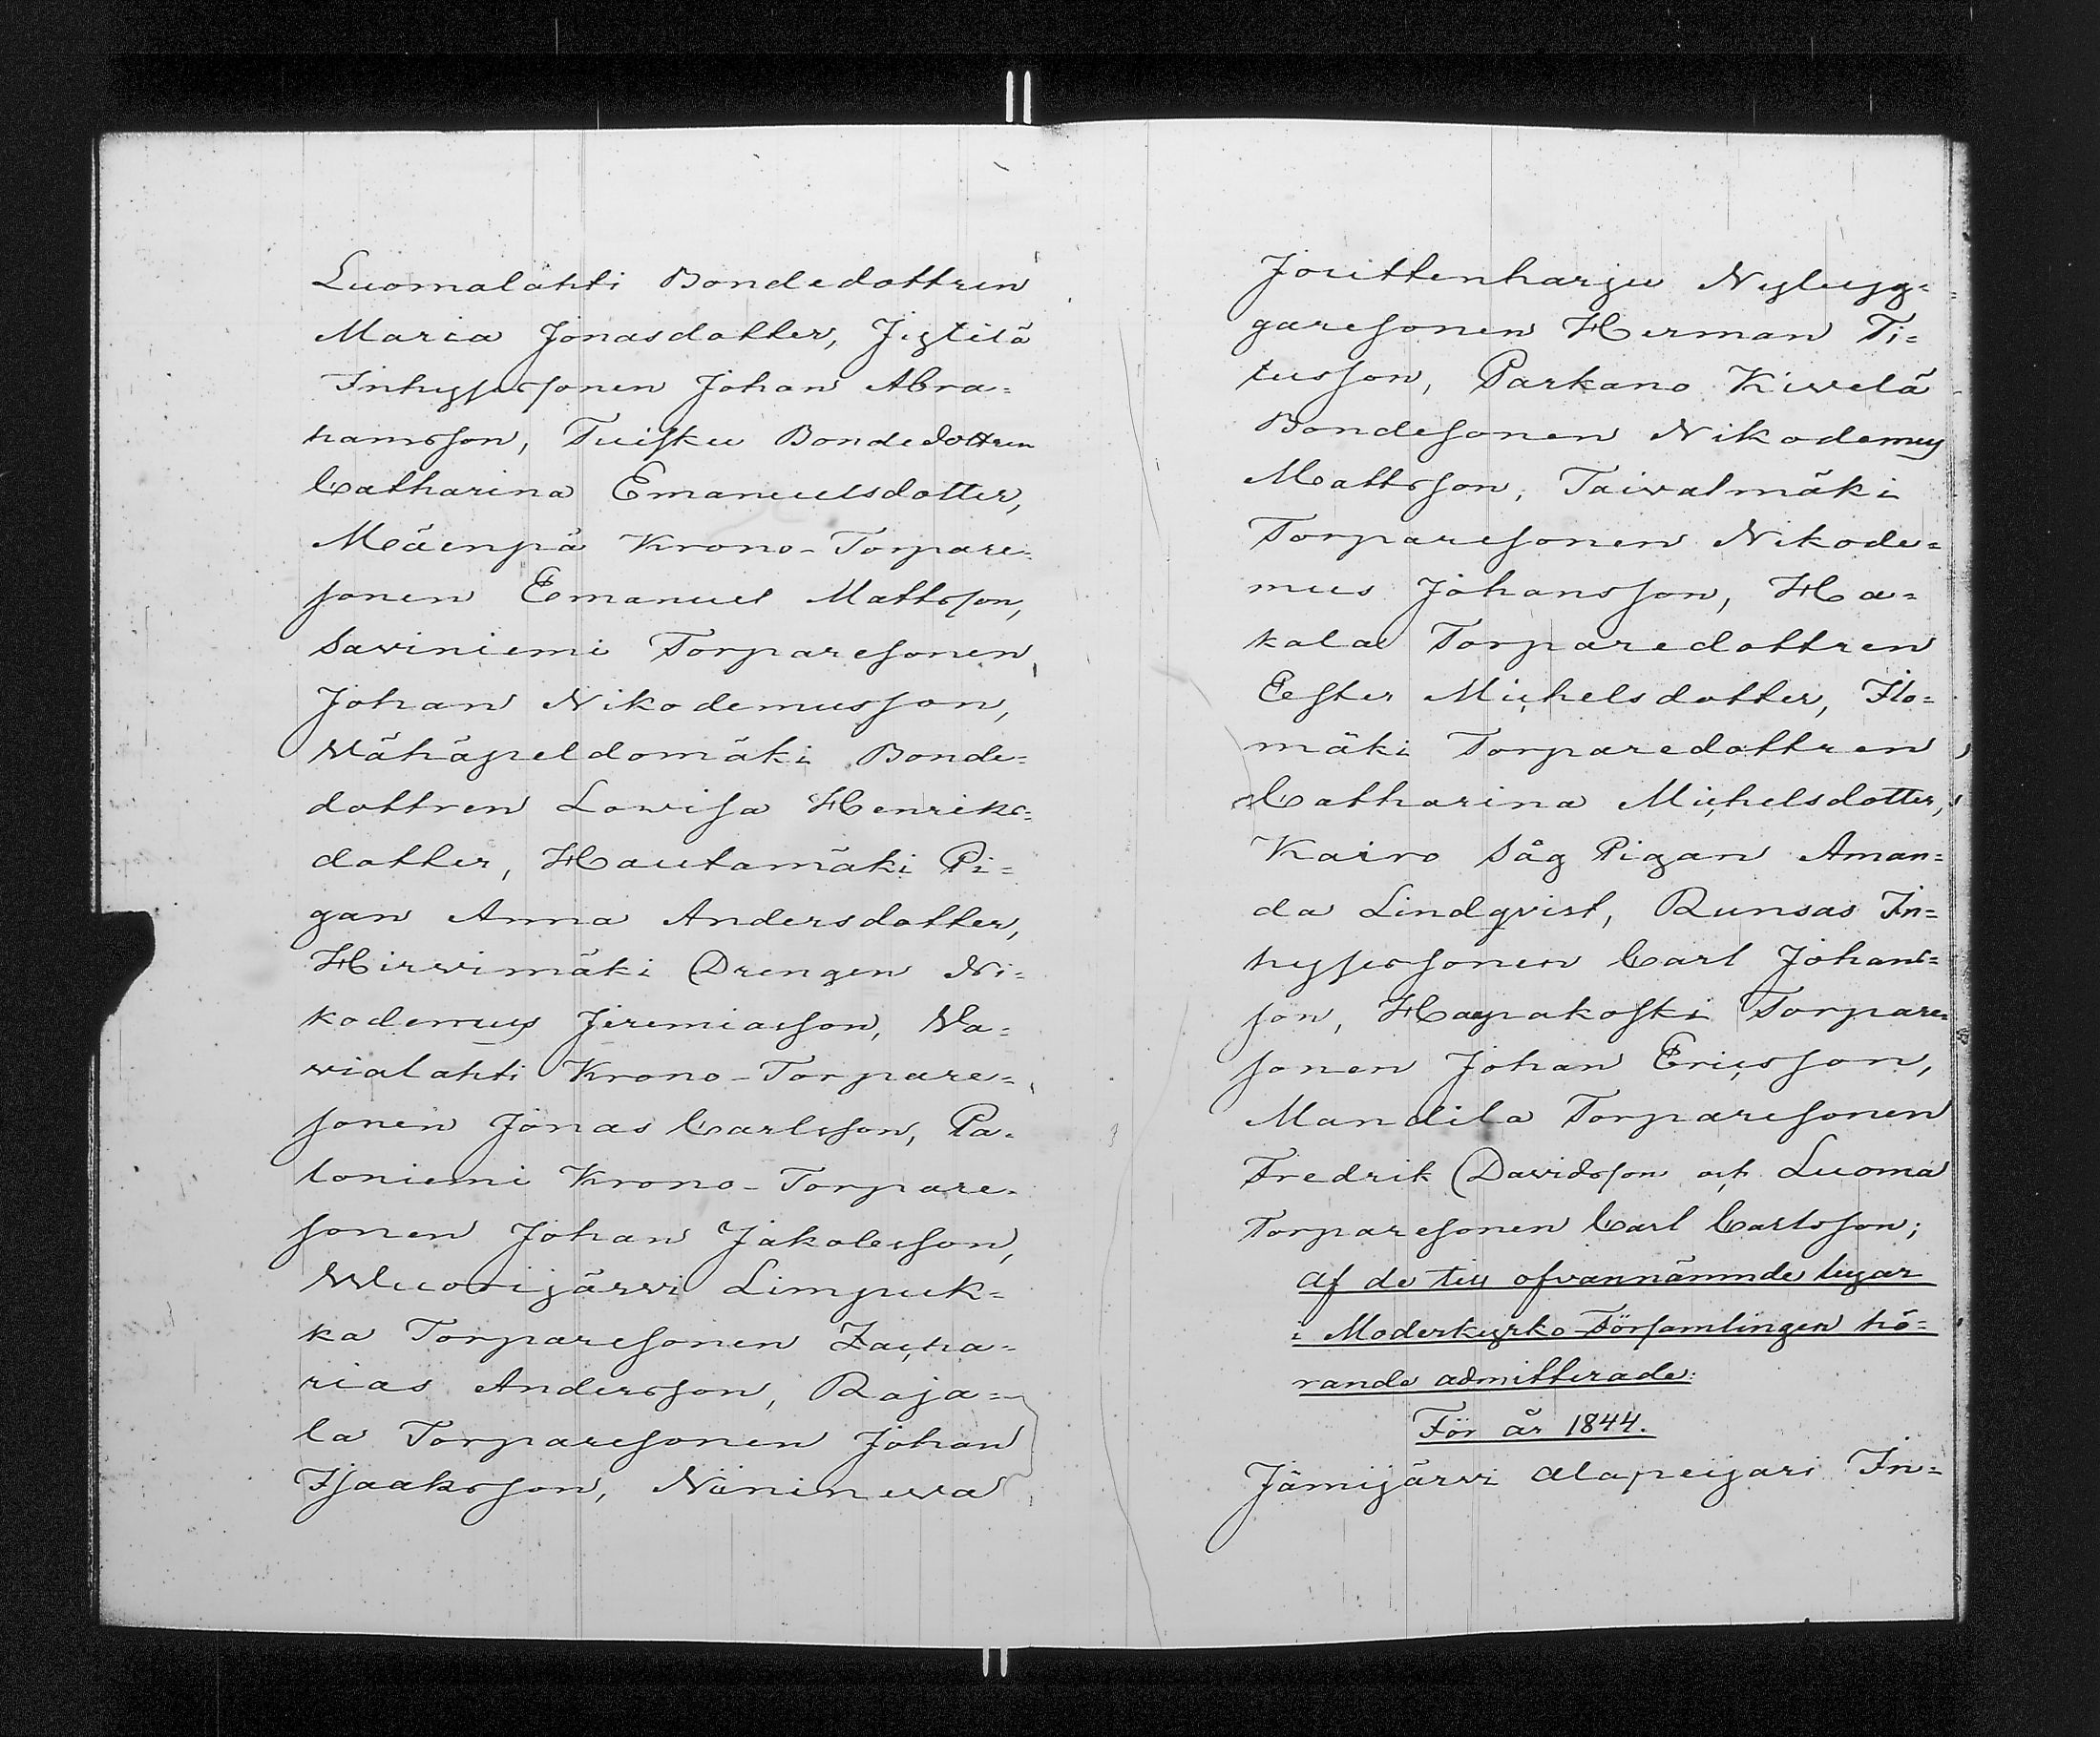 Luomalahti Bondedottren
Maria Jonasdotter, Jyllilä
Inhysessonen Johan Abra=
hamsson, Tuisku Bondedottren
Catharina Emanuelsdotter,
Mäenpä Krono-Torpare=
sonen Emanuel Mattsson,
Saviniemi Torparesonen
Johan Nikodemusson,
Wähäpeldomäki Bonde=
dottren Lowisa Henriks=
dotter, Hautamäki Pi=
gan Anna Andersdotter,
Hirvimäki Drengen Ni=
kodemus Jeremiasson, Wa=
vialahti Krono-Torpare=
sonen Jonas Carlsson, Pa=
loniemi Krono-Torpare=
sonen Johan Jakobsson,
Wuorijärvi Limpuk=
ka Torparesonen Zacha=
rias Andersson, Raja=
la Torparesonen Johan
Isaaksson, Näninewa
Jouttenharju Nybyg=
garesonen Herman Ti=
tusson, Parkano Kiwelä
Bondesonen Nikodemus
Mattsson, Taiwalmäki
Torparesonen Nikode=
mus Johansson, Ha=
kala Torparedottren
Eester Michelsdotter, Ilo=
mäki Torparedottren
Catharina Michelsdotter,
Kairo Såg Pigan Aman=
da Lindqvist, Runsas In=
hysessonen Carl Johans=
son, Haapakoski Torpare=
sonen Johan Ericsson,
Mandila Torparesonen
Fredrik Davidsson och Luoma
Torparesonen Carl Carlsson;
af de till ofvannämnde lagar
i Moderkyrko-Församlingen hö=
rande admitterade:
För år 1844.
Jämijärvi Alapeijari In=